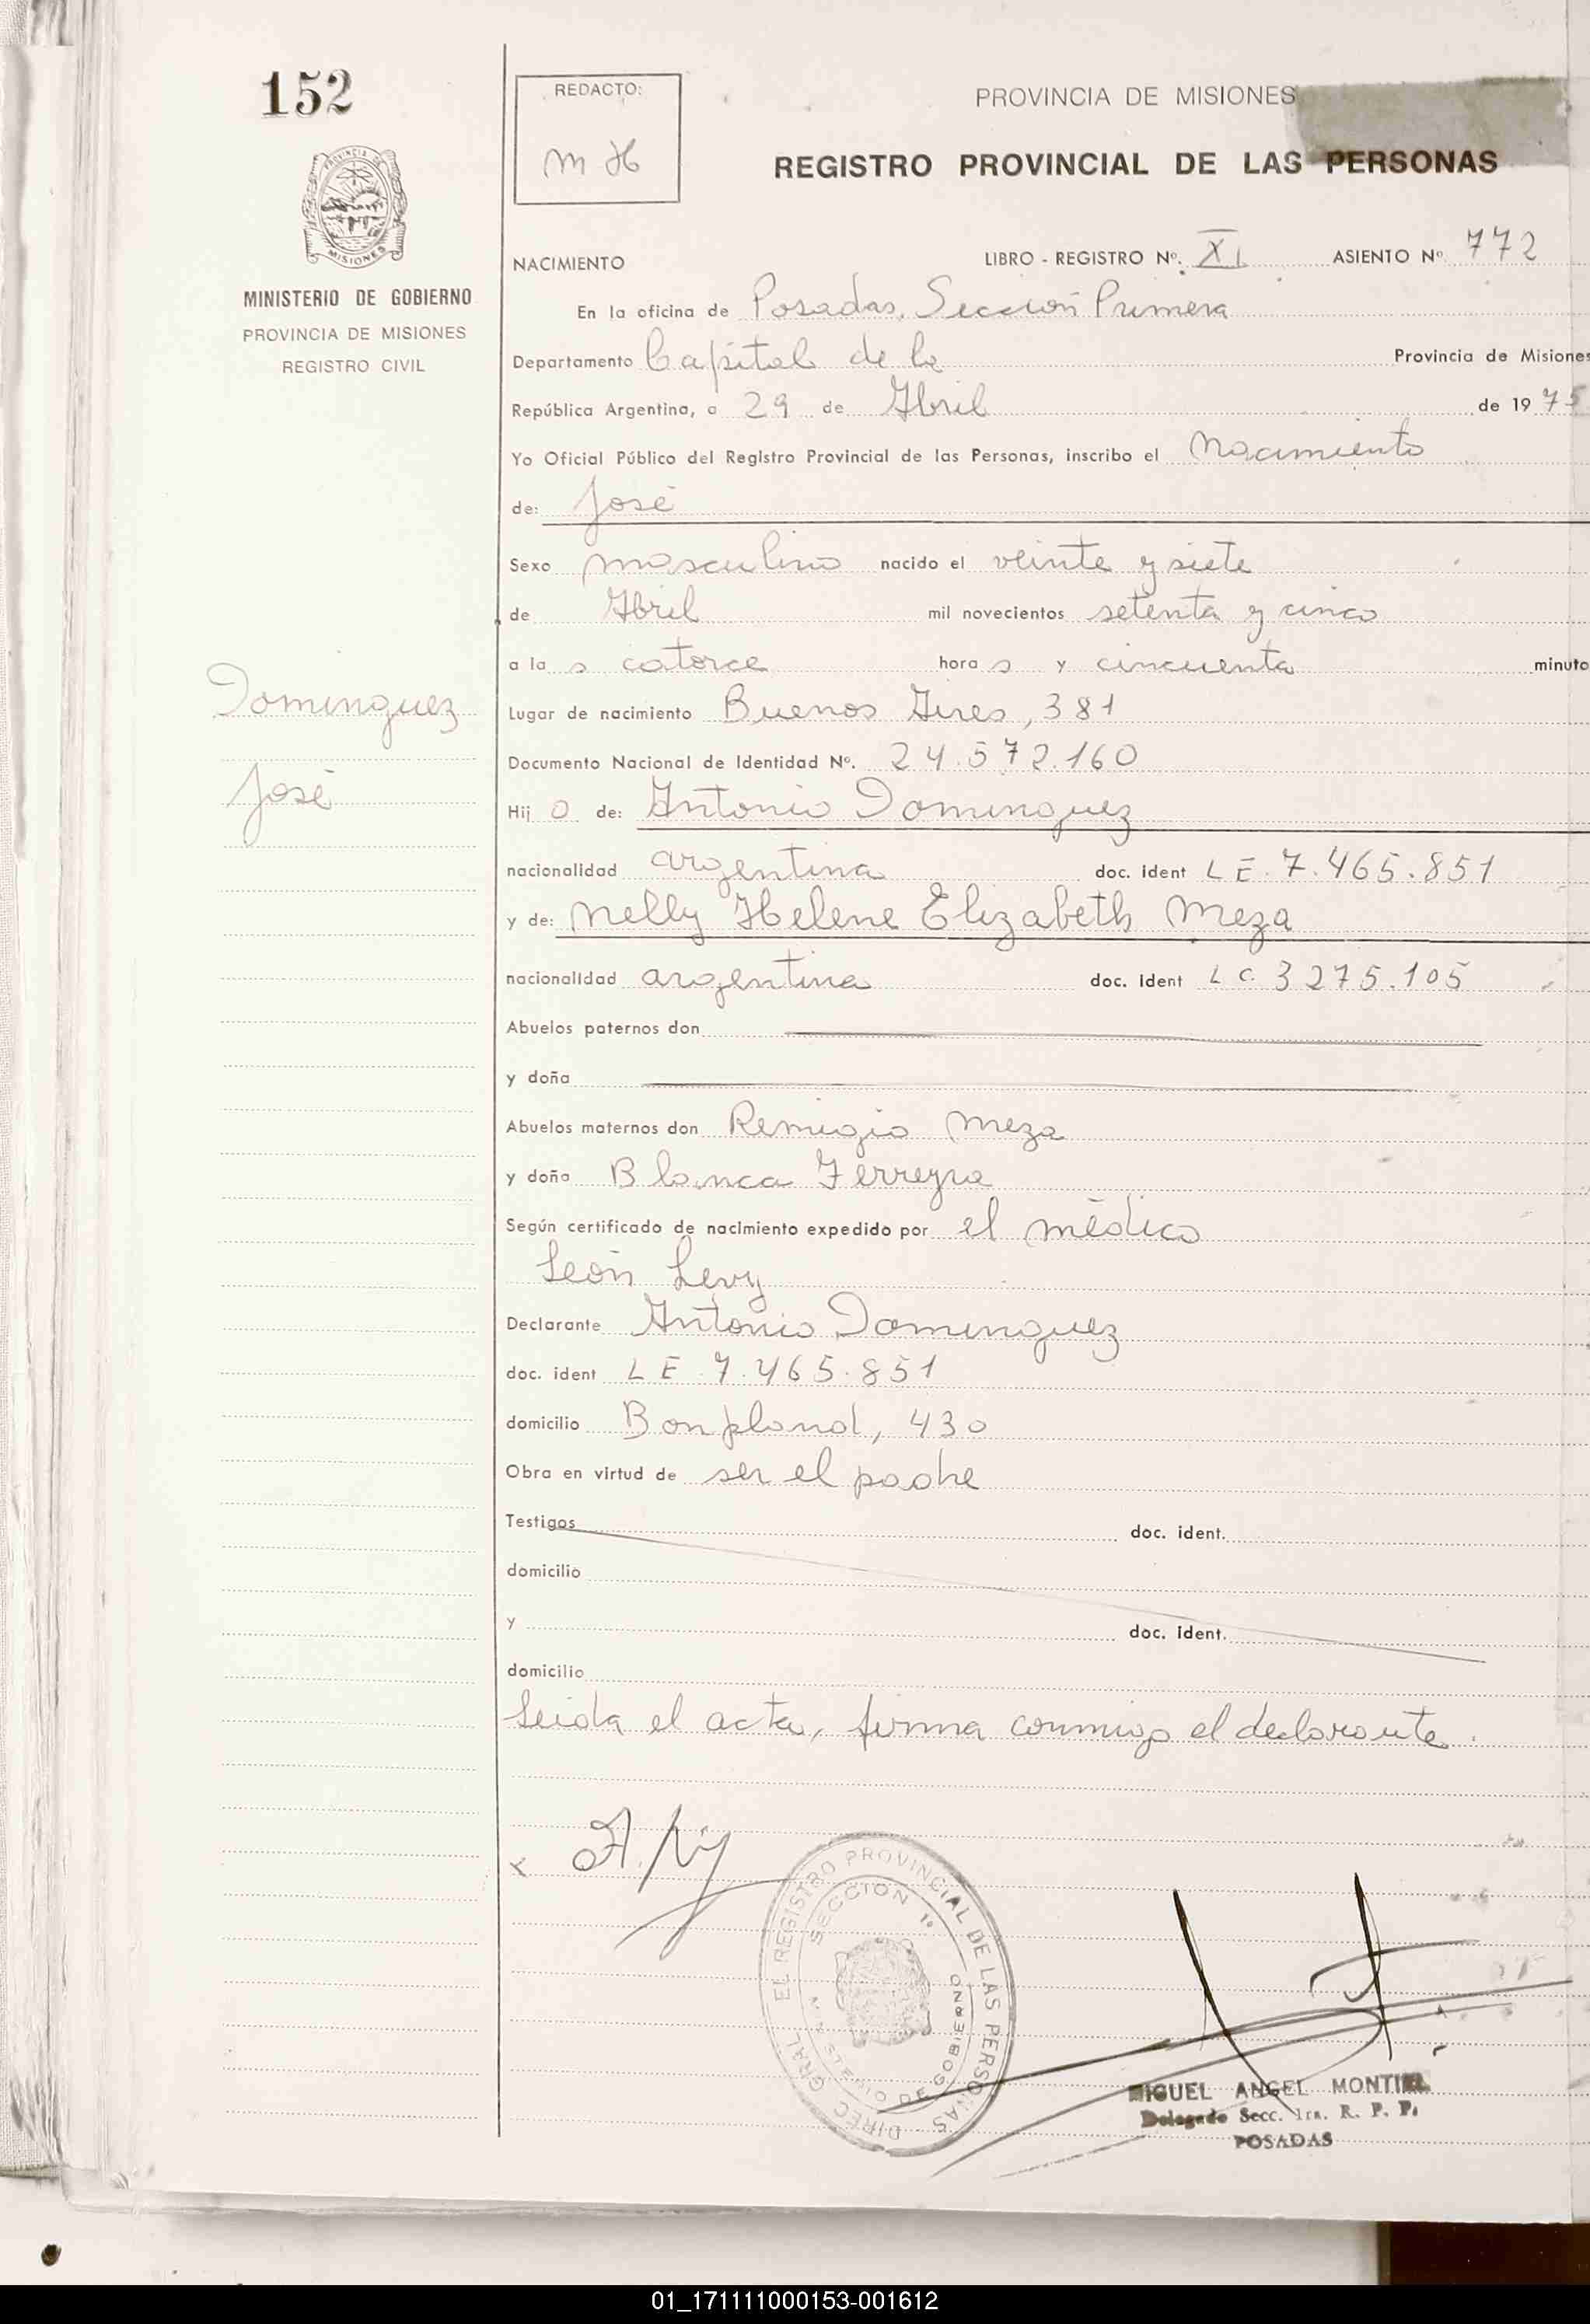 152
REDACTO:
M H
PROVINCIA DE MISIONES
REGISTRO PROVINCIAL DE LAS PERSONAS
PROVINCIA DE
MISIONES
MINISTERIO DE GOBIERNO
PROVINCIA DE MISIONES
REGISTRO CIVIL
NACIMIENTO LIBRO - REGISTRO Nº. XI ASIENTO Nº 772
En la oficina de Posadas, Sección Primera
Departamento Capital de la Provincia de Misiones
República Argentina, a 29 de Abril de 1975
Yo Oficial Público del Registro Provincial de las Personas, inscribo el Nacimiento
de: José
Sexo masculino nacido el veinte y siete
de Abril mil novecientos setenta y cinco
a la s catorce hora s y cincuenta minuto
Dominguez
José
Lugar de nacimiento Buenos Aires, 381
Documento Nacional de Identidad Nº. 24.572.160
Hij o de: Antonio Dominguez
nacionalidad argentina doc. ident L E. 7.465.851
y de: Nelly Helene Elizabeth Meza
nacionalidad argentina doc. ident L C. 3 275.105
Abuelos paternos don
y doña
Abuelos maternos don Remigio Meza
y doña Blanca Ferreyra
Según certificado de nacimiento expedido por el médico
León Levy
Declarante Antonio Dominguez
doc. ident L E. 7.465.851
domicilio Bonpland, 430
Obra en virtud de ser el padre
Testigos doc. ident.
domicilio
y doc. ident.
domicilio
Leida el acta, firma conmigo el declarante.
DIREC. GRAL. EL REGISTRO PROVINCIAL DE LAS PERSONAS
SECCION 1ª
MINISTERIO DE GOBIERNO
MIGUEL ANGEL MONTIEL
Delegado Secc. 1ra. R. P. P.
POSADAS
01_171111000153-001612